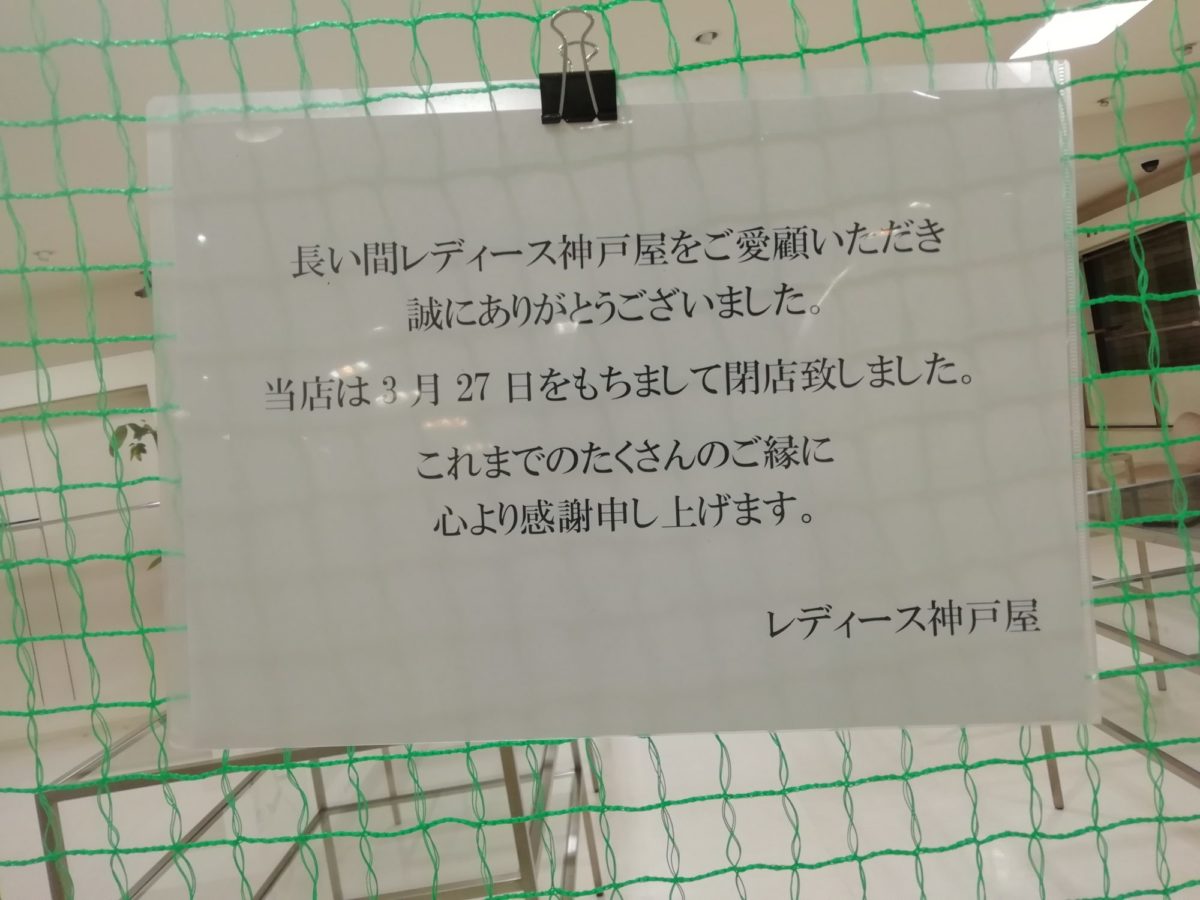 長い間レディース神戸屋をご愛顧いただき
誠にありがとうございました。
当店は3月27日をもちまして閉店致しました。
これまでのたくさんのご縁に
心より感謝申し上げます。
レディース神戸屋